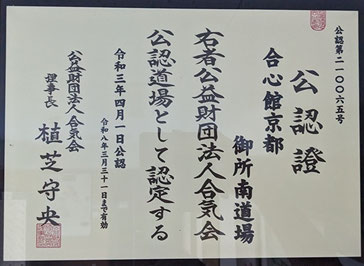 公認第二一〇〇六五号
公認證
合心館京都
御所南道場
右者公益財団法人合気会
公認道場として認定する
令和三年四月一日公認
令和八年三月三十一日まで有効
公益財団法人合気会
理事長 植芝守央